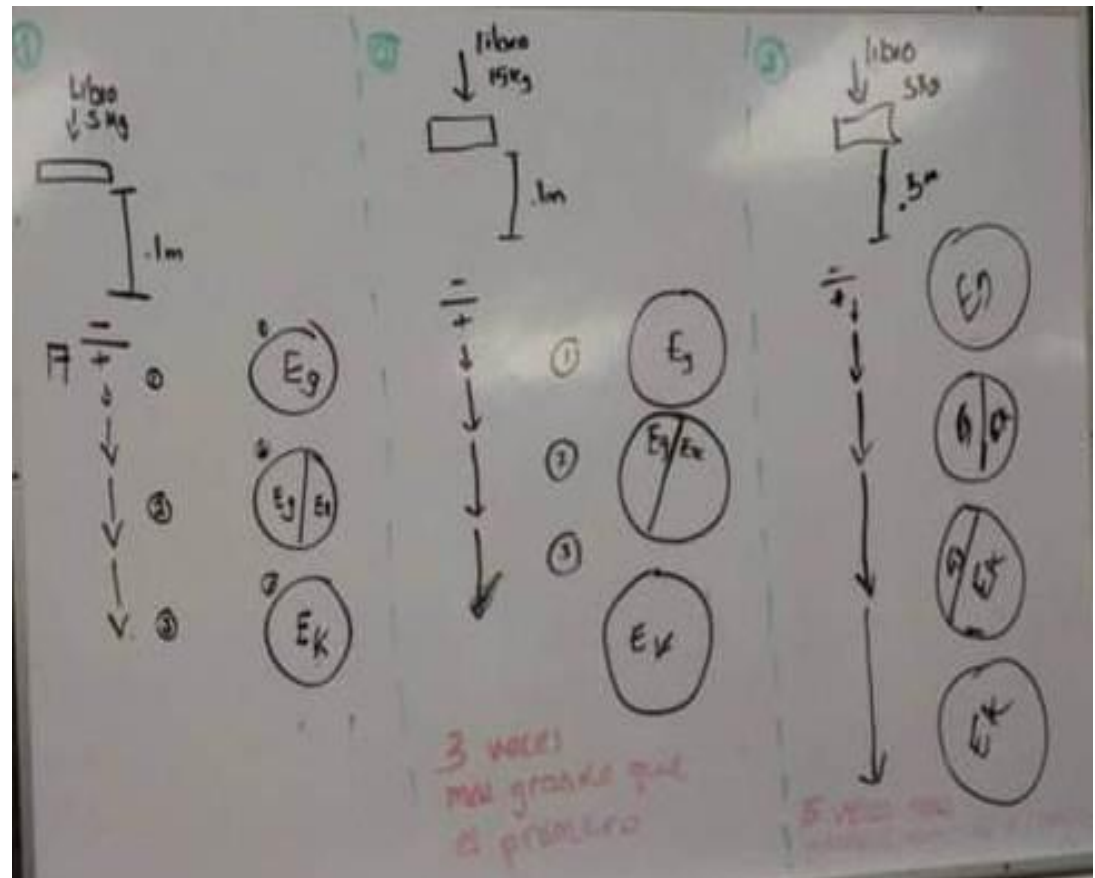 ①
Libro
5 Kg
.1m
A
-
+
①
②
③
Eg
Eg
Ek
②
libro
15Kg
.1m
-
+
①
②
③
Eg
Eg Ek
Ek
3 veces
mas grande que
el primero
③
libro
5Kg
-
+
Eg
Ek
Ek
5 veces mas